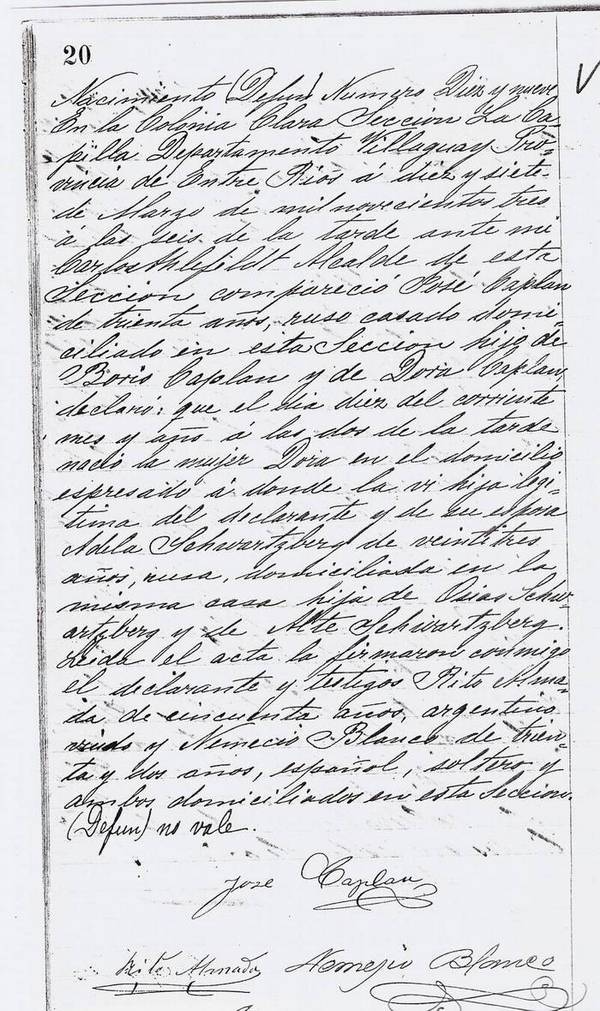 20
Nacimiento (Defun) Numero Diez y nueve
En la Colonia Clara Seccion La Ca-
pilla Departamento Villaguay Pro-
vincia de Entre Rios á diez y siete
de Marzo de mil novecientos tres
á las seis de la tarde ante mi
Carlos Alcalde de esta
Seccion compareció José Caplan
de treinta años, ruso casado domi-
ciliado en esta Seccion hijo de
Boris Caplan y de Dora Caplan,
declaró: que el dia diez del corriente
mes y año á las dos de la tarde
nació la mujer Dora en el domicilio
espresado á donde la vi hija legi-
tima del declarante y de su esposa
Adela Schwartzberg de veintitres
años, rusa, domiciliada en la
misma casa hija de Osias Schw-
artzberg y de Alte Schwartzberg.
Leida el acta la firmaron conmigo
el declarante y testigos Rito Alma-
da de cincuenta años, argentino
viudo y Nemecio Blanco de trein-
ta y dos años, español, soltero y
ambos domiciliados en esta Seccion.
(Defun) no vale.
Jose Caplan
Rito Almada Nemejio Blanco